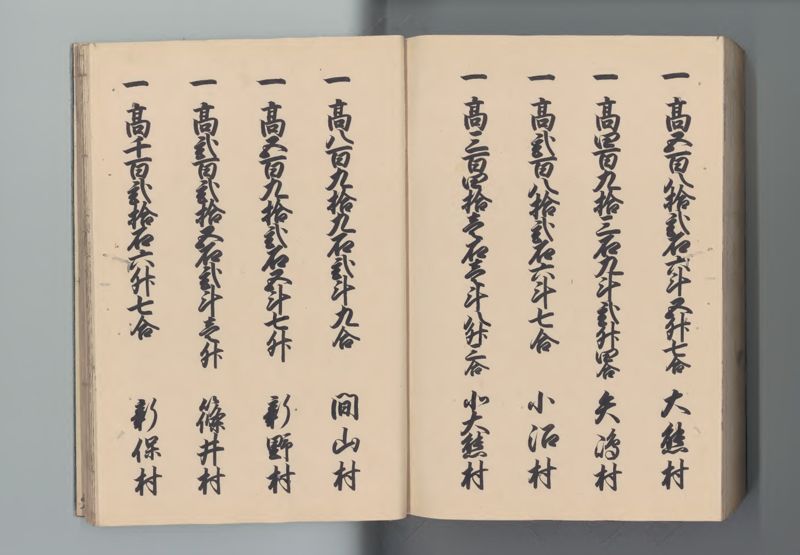 一 高五百八拾弐石六斗五升七合 大熊村
一 高四百九拾三石九斗弐升四合 矢嶋村
一 高弐百八拾弐石六斗七合 小沼村
一 高三百四拾壱石壱斗八升二合 小大熊村
一 高八百九拾九石弐斗九合 間山村
一 高五百九拾弐石五斗七升 新野村
一 高弐百弐拾五石弐斗壱升 篠井村
一 高千百弐拾石六升七合 新保村